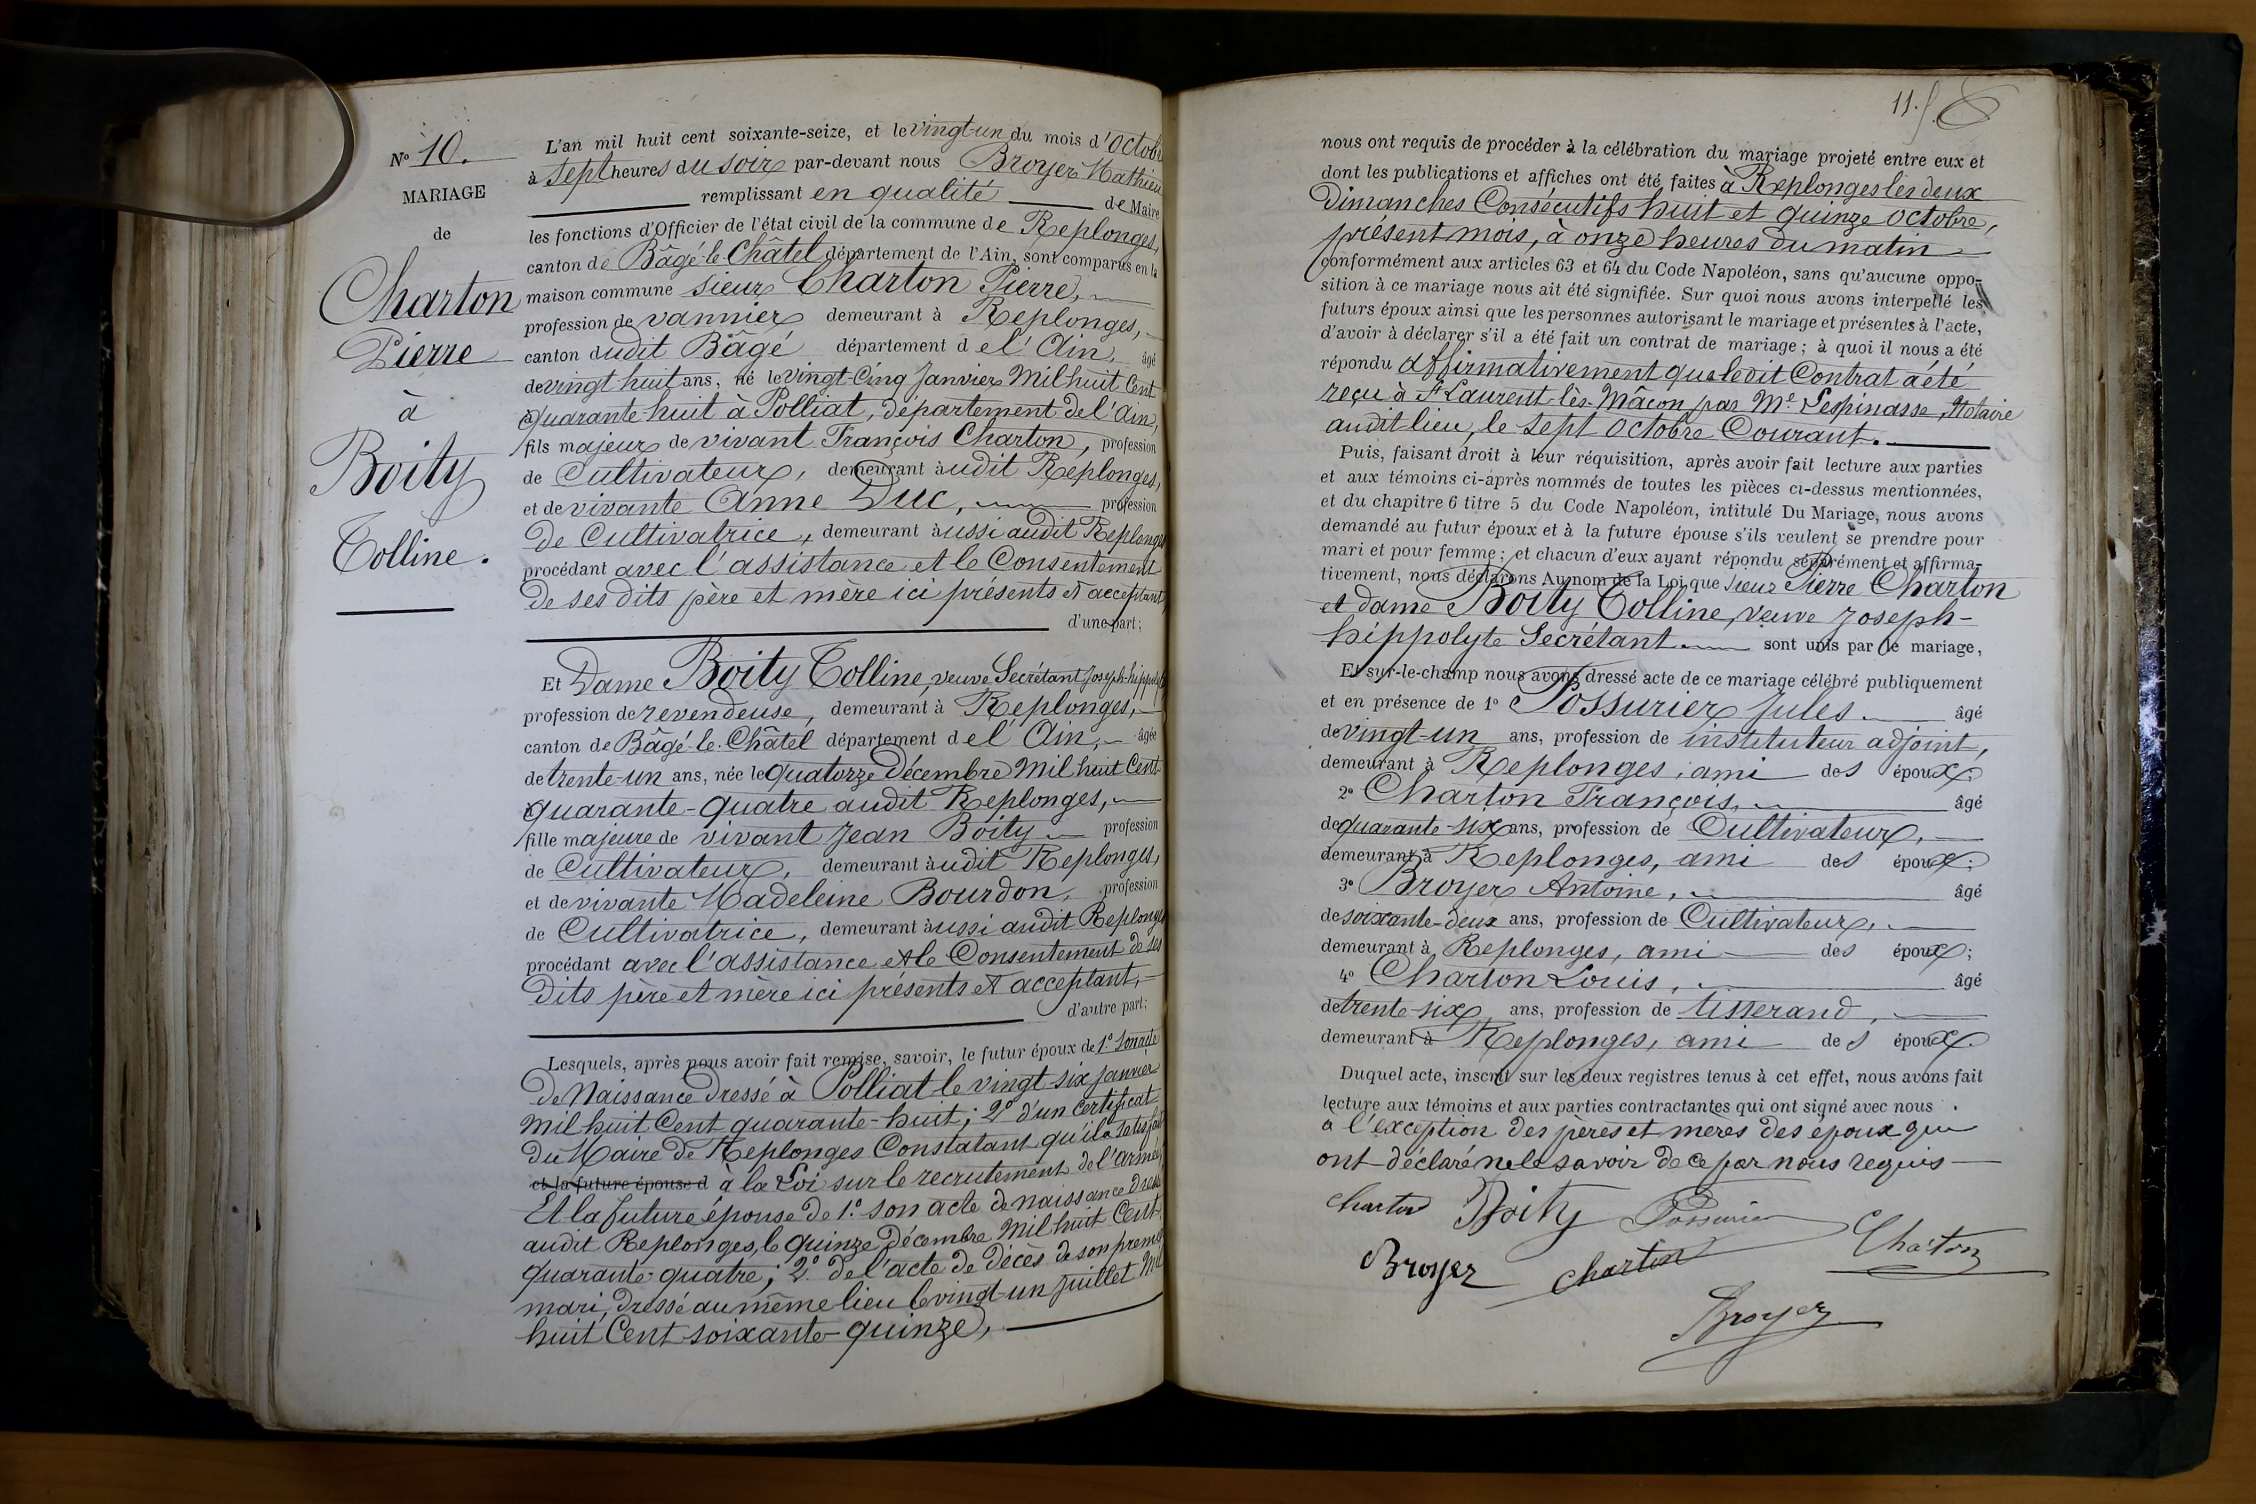 N° 10.
MARIAGE
de
Charton
Pierre
à
Boity
Colline.
L'an mil huit cent soixante-seize, et le vingt-un du mois d'Octobre
à sept heures du soir par-devant nous Broyer Mathieu
remplissant en qualité de Maire
les fonctions d'Officier de l'état civil de la commune de Replonges,
canton de Bâgé-le-Châtel département de l'Ain, sont comparus en la
maison commune sieur Charton Pierre,
profession de vannier demeurant à Replonges,
canton dudit Bâgé département de l'Ain, âgé
de vingt huit ans, né le vingt-cinq janvier Mil huit Cent
quarante huit à Polliat, département de l'ain,
fils majeur de vivant François Charton, profession
de Cultivateur, demeurant audit Replonges,
et de vivante Anne Duc, profession
de Cultivatrice, demeurant aussi audit Replonges
procédant avec l'assistance et le Consentement
de ses dits père et mère ici présents et acceptant,
d'une part;
Et Dame Boity Colline, veuve Secrétant Joseph-hippolyte
profession de revendeuse, demeurant à Replonges,
canton de Bâgé-le-Châtel département de l'Ain, âgée
de trente-un ans, née le quatorze Décembre Mil huit Cent
quarante-quatre audit Replonges,
fille majeure de vivant Jean Boity profession
de Cultivateur, demeurant audit Replonges,
et de vivante Madeleine Bourdon, profession
de Cultivatrice, demeurant aussi audit Replonges
procédant avec l'assistance et le Consentement de ses
dits père et mère ici présents et acceptant,
d'autre part;
Lesquels, après nous avoir fait remise, savoir, le futur époux de 1° son acte
de Naissance dressé à Polliat le vingt-six janvier
mil huit Cent quarante-huit; 2° d'un certificat
du Maire de Replonges Constatant qu'il a satisfait
et la future épouse d à la Loi sur le recrutement de l'armée;
Et la future épouse de 1° son acte de naissance dressé
audit Replonges, le quinze Décembre Mil huit Cent
quarante-quatre; 2° de l'acte de décès de son premier
mari, dressé au même lieu le vingt-un juillet Mil
huit Cent soixante-quinze,
11.
nous ont requis de procéder à la célébration du mariage projeté entre eux et
dont les publications et affiches ont été faites à Replonges les deux
Dimanches Consécutifs huit et quinze octobre,
présent mois, à onze heures du matin
conformément aux articles 63 et 64 du Code Napoléon, sans qu'aucune oppo-
sition à ce mariage nous ait été signifiée. Sur quoi nous avons interpellé les
futurs époux ainsi que les personnes autorisant le mariage et présentes à l'acte,
d'avoir à déclarer s'il a été fait un contrat de mariage; à quoi il nous a été
répondu affirmativement que ledit Contrat a été
reçu à St Laurent-lès-Mâcon par Me Lespinasse, Notaire
audit lieu, le sept octobre Courant.
Puis, faisant droit à leur réquisition, après avoir fait lecture aux parties
et aux témoins ci-après nommés de toutes les pièces ci-dessus mentionnées,
et du chapitre 6 titre 5 du Code Napoléon, intitulé Du Mariage, nous avons
demandé au futur époux et à la future épouse s'ils veulent se prendre pour
mari et pour femme; et chacun d'eux ayant répondu séparément et affirma-
tivement, nous déclarons Au nom de la Loi que sieur Pierre Charton
et dame Boity Colline, veuve Joseph-
hippolyte Secrétant sont unis par le mariage,
Et sur-le-champ nous avons dressé acte de ce mariage célébré publiquement
et en présence de 1° Possurier Jules âgé
de vingt-un ans, profession de instituteur adjoint,
demeurant à Replonges, ami des époux;
2° Charton François, âgé
de quarante-six ans, profession de Cultivateur,
demeurant à Replonges, ami des époux;
3° Broyer Antoine, âgé
de soixante-deux ans, profession de Cultivateur,
demeurant à Replonges, ami des époux;
4° Charton Louis, âgé
de trente-six ans, profession de tisserand,
demeurant à Replonges, ami des époux.
Duquel acte, inscrit sur les deux registres tenus à cet effet, nous avons fait
lecture aux témoins et aux parties contractantes qui ont signé avec nous
à l'exception des pères et mères des époux qui
ont déclaré ne le savoir de ce par nous requis
Charton Boity Possurier
Charton
Broyer Charton
Broyer